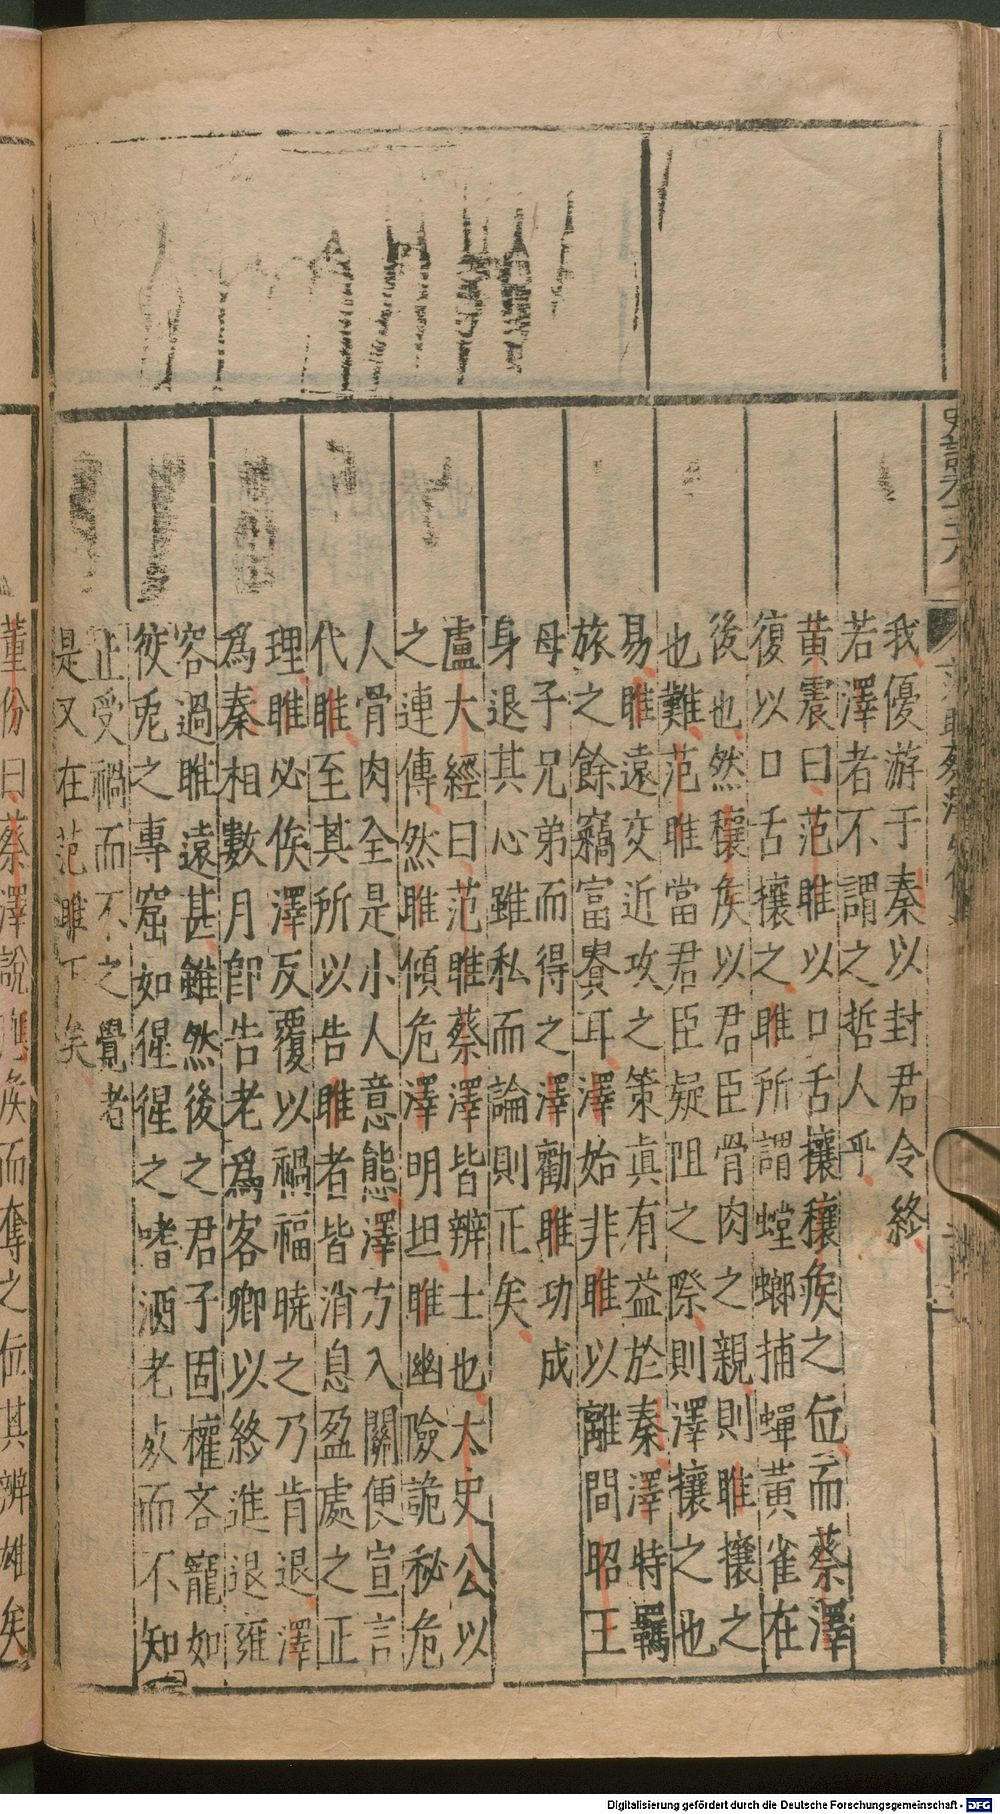 我優游于秦以封君令終
若澤者不謂之哲人乎
黃震曰范雎以口舌攘穰矦之位而蔡澤
復以口舌攘之雎所謂螳螂捕蟬黃雀在
後也然穰矦以君臣骨肉之親則雎攘之
也難范雎當君臣疑阻之際則澤攘之也
易雎遠交近攻之策真有益於秦澤特羈
旅之餘竊富貴耳澤始非雎以離間昭王
母子兄弟而得之澤勸雎功成
身退其心雖私而論則正矣
盧大經曰范雎蔡澤皆辨士也太史公以
之連傳然雎傾危澤明坦雎幽險詭秘危
人骨肉全是小人意態澤方入關便宣言
代雎至其所以告雎者皆消息盈處之正
理雎必俟澤反覆以禍福曉之乃肯退澤
為秦相數月卽告老為客卿以終進退雍
容過雎遠甚雖然後之君子固權吝寵如
狡兎之專窟如猩猩之嗜酒老死而不知
止受禍而不之覺者
是又在范雎下矣
董份曰蔡澤說應矦而奪之位其辨雄矣
Digitalisierung gefördert durch die Deutsche Forschungsgemeinschaft - DFG